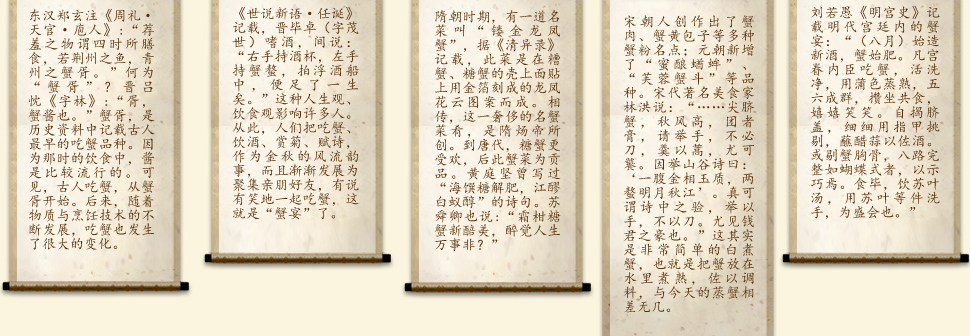 东汉郑玄注《周礼·
天官·庖人》:“荐
羞之物谓四时所膳
食,若荆州之鱼,青
州之蟹胥。”何为
“蟹胥”?晋吕
忱《字林》:“胥,
蟹酱也。”蟹胥,是
历史资料中记载古人
最早的吃蟹品种。因
为那时的饮食中,酱
是比较流行的。可
见,古人吃蟹,从蟹
胥开始。后来,随着
物质与烹饪技术的不
断发展,吃蟹也发生
了很大的变化。
《世说新语·任诞》
记载,晋毕卓(字茂
世)嗜酒,间说:
“右手持酒杯,左手
持蟹螯,拍浮酒船
中,便足了一生
矣。”这种人生观、
饮食观影响许多人。
从此,人们把吃蟹、
饮酒、赏菊、赋诗,
作为金秋的风流韵
事,而且渐渐发展为
聚集亲朋好友,有说
有笑地一起吃蟹,这
就是“蟹宴”了。
隋朝时期,有一道名
菜叫“镂金龙凤
蟹”,据《清异录》
记载,此菜是在糟
蟹、糖蟹的壳上面贴
上用金箔刻成的龙凤
花云图案而成。相
传,这一奢侈的名蟹
菜肴,是隋炀帝所
创。到唐代,糖蟹更
受欢,后此蟹菜为贡
品。黄庭坚曾写过
“海馔糖解肥,江醪
白蚁醇”的诗句。苏
舜卿也说:“霜柑糖
蟹新醅美,醉觉人生
万事非?”
宋朝人创作出了蟹
肉、蟹黄包子等多种
蟹粉名点;元朝新增
了“蜜酿蝤蛑”、
“芙蓉蟹斗”等品
种。宋代著名美食家
林洪说:“……尖脐
蟹,秋风高,团者
膏,请举手,不必
刀,羹以蒿,尤可
饕。因举山谷诗曰:
‘一腹金相玉质,两
螯明月秋江’。真可
谓诗中之验,举以
手,不以刀。尤见钱
君之豪也。”这其实
是非常简单的白煮
蟹,也就是把蟹放在
水里煮熟,佐以调
料,与今天的蒸蟹相
差无几。
刘若愚《明宫史》记
载明代宫廷内的蟹
宴:“(八月)始造
新酒,蟹始肥。凡宫
眷内臣吃蟹,活洗
净,用蒲色蒸熟,五
六成群,攒坐共食,
嬉嬉笑笑。自揭脐
盖,细细用指甲挑
剔,蘸醋蒜以佐酒。
或剔蟹胸骨,八路完
整如蝴蝶式者,以示
巧焉。食毕,饮苏叶
汤,用苏叶等件洗
手,为盛会也。”